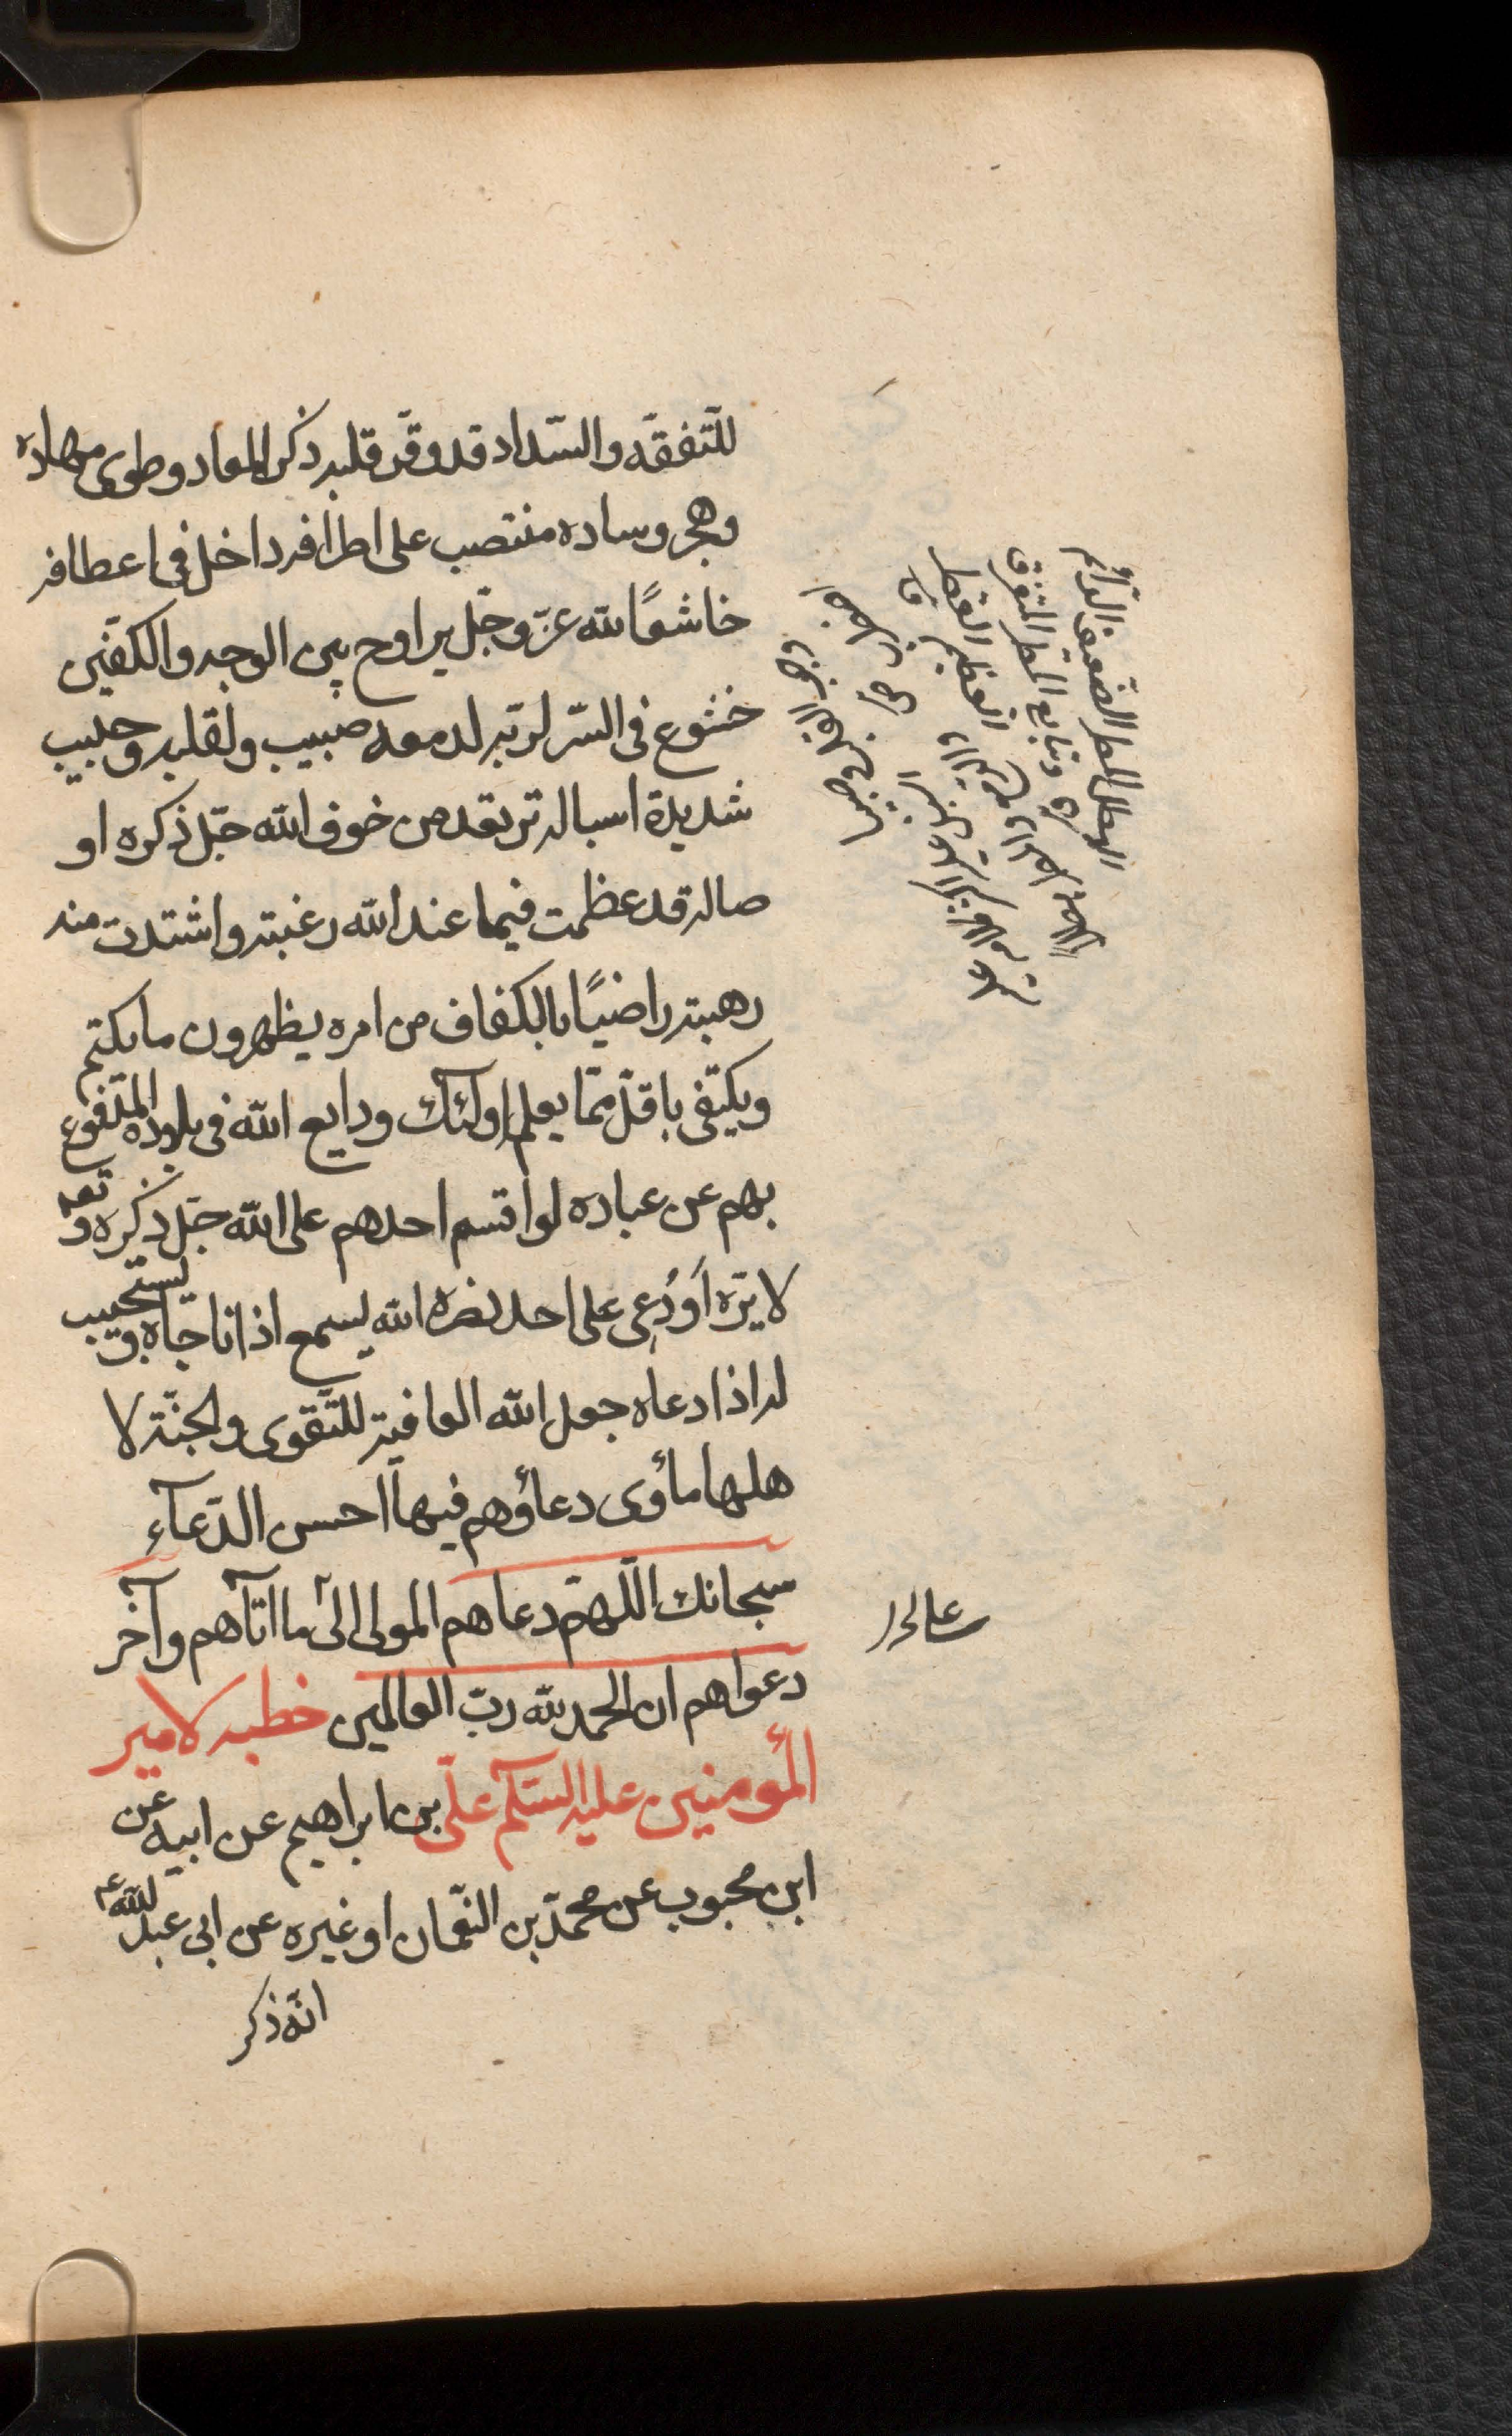 للتّفقّه والسّداد قد وقّر قلبه ذكر المعاد وطوى مهاده
وهجر وساده منتصب على اطرافه داخل فى اعطافه
خاشعًا لله عزّ وجلّ يراوح بين الوجه والكفّين
خشوع فى السّر لربّه لدمعه صبيب ولقلبه وجيب
شديدة اسباله ترتعد من خوف الله جلّ ذكره او
صاله قد عظمت فيما عند الله رغبته واشتدت منه
رهبته راضيًا بالكفاف من امره يظهرون ما يكتم
ويكتفى باقلّ ممّا يعلم اولئك ودايع الله فى بلاده المدفوع
بهم عن عباده لو اقسم احدهم على الله جلّ ذكره و تعه
لابرّه أَو دُعى على احد نصره الله يسمع اذا ناجاه ويستجيب
له اذا دعاه جعل الله العاقبة للتّقوى والجنّة لا
هلها مأوى دعاؤهم فيها احسن الدّعآء
سبحانك اللّهمّ دعاهم المولى الى ما اتآهم وآخر
دعواهم ان الحمد لله ربّ العالمين خطبه لامير
المؤمنين عليه السّلم علىّ بن ابراهيم عن ابيه عن
ابن محبوب عن محمّد بن النّعمان او غيره عن ابى عبد الله ع
انّه ذكر
الهطل المطر الضعيف الدائم
وتتابع المطر المتفرق
العظيم القطر